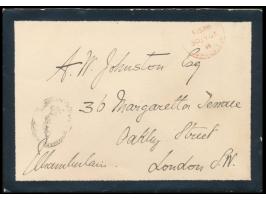 A. W. Johnston Esq
36 Margaretta Terrace
Oakley Street
London S.W.
Chamberlain